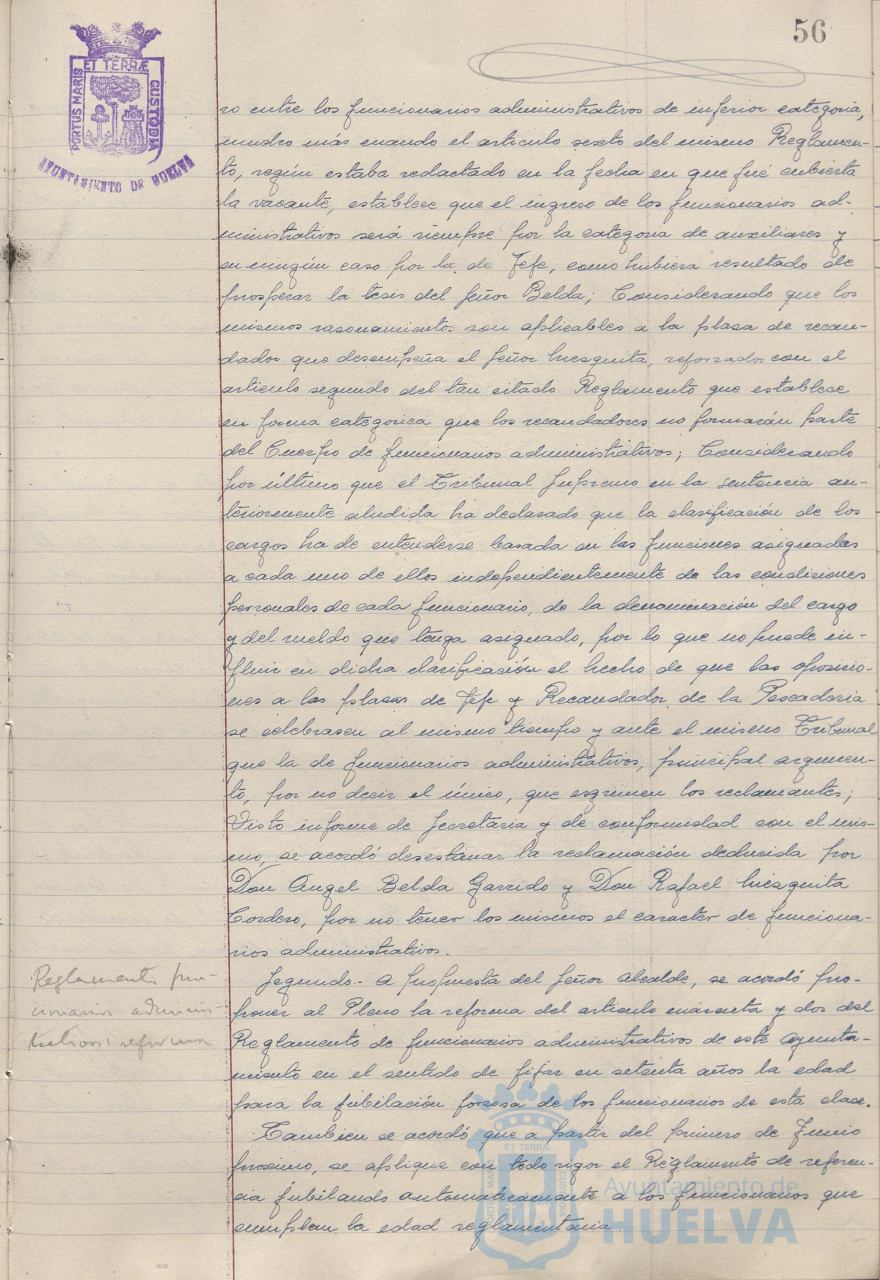 56
PORTUS MARIS ET TERRÆ CUSTODIA
AYUNTAMIENTO DE HUELVA
ro entre los funcionarios administrativos de inferior categoria,
mucho más cuando el articulo sexto del mismo Reglamen-
to, según estaba redactado en la fecha en que fué cubierta
la vacante, establece que el ingreso de los funcionarios ad-
ministrativos será siempre por la categoria de auxiliares y
en ningún caso por la de Jefe, como hubiera resultado de
prosperar la tesis del Señor Belda; Considerando que los
mismos razonamientos son aplicables a la plaza de recau-
dador que desempeña el Señor Mesquita, reforzados con el
articulo segundo del tan citado Reglamento que establece
en forma categorica que los recaudadores no formarán parte
del Cuerpo de funcionarios administrativos; Considerando
por último que el Tribunal Supremo en la sentencia an-
teriormente aludida ha declarado que la clasificación de los
cargos ha de entenderse basada en las funciones asignadas
a cada uno de ellos independientemente de las condiciones
personales de cada funcionario, de la denominación del cargo
y del sueldo que tenga asignado, por lo que no puede in-
fluir en dicha clasificación el hecho de que las oposicio-
nes a las plazas de Jefe y Recaudador de la Pescaderia
se celebrasen al mismo tiempo y ante el mismo Tribunal
que la de funcionarios administrativos, principal argumen-
to, por no decir el único, que esgrimen los reclamantes;
Visto informe de Secretaria y de conformidad con el mis-
mo, se acordó desestimar la reclamación deducida por
Don Angel Belda Garrido y Don Rafael Mesquita
Cordero, por no tener los mismos el caracter de funciona-
rios administrativos.
Reglamento fun-
cionarios adminis-
trativos: reforma
Segundo.- A propuesta del Señor Alcalde, se acordó pro-
poner al Pleno la reforma del articulo cuarenta y dos del
Reglamento de funcionarios administrativos de este Ayunta-
miento en el sentido de fijar en setenta años la edad
para la jubilación forzosa de los funcionarios de esta clase.
Tambien se acordó que a partir del primero de Junio
proximo, se aplique con todo rigor el Reglamento de referen-
cia jubilando automaticamente a los funcionarios que
cumplan la edad reglamentaria
Ayuntamiento de
HUELVA